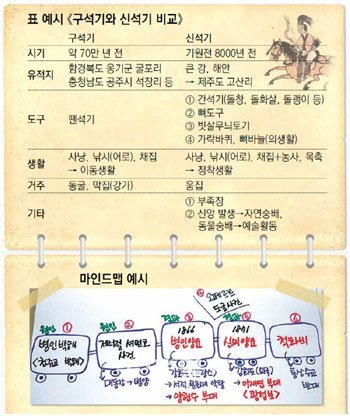 표 예시 《구석기와 신석기 비교》
구석기 신석기
시기 약 70만 년 전 기원전 8000년 경
유적지 함경북도 웅기군 굴포리 큰 강, 해안
충청남도 공주시 석장리 등 → 제주도 고산리
① 간석기(돌창, 돌화살, 돌괭이 등)
② 뼈도구
도구 뗀석기
③ 빗살무늬토기
④ 가락바퀴, 뼈바늘(의생활)
생활 사냥, 낚시(어로), 채집 사냥, 낚시(어로), 채집+농사, 목축
→ 이동생활 → 정착생활
거주 동굴, 막집(강가) 움집
① 부족장
기타 ② 신앙 발생→자연숭배,
동물숭배→예술활동
마인드맵 예시
④ 오페르트
도굴사건
원인 ① 원인 ② 결과 ③ 결과 ⑤ ⑥
병인박해
<천주교 박해>
제너럴 셔먼호
사건
1866
병인양요
1871
신미양요
척화비
대동강 → 평양
양헌수 부대
어재연 부대
<광성보>